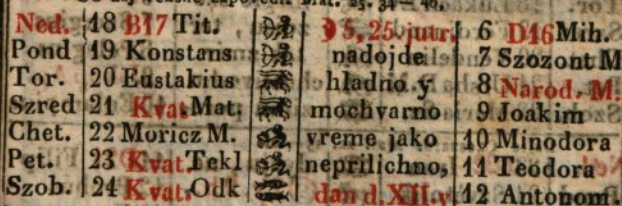 Ned. 18 B17 Tit. 5, 25. jutr. 6 D16 Mih.
Pond 19 Konstans nadojde 7 Szozont M
Tor. 20 Eustakius hladno y 8 Narod. M.
Szred 21 Kvat. Mat. mochvarno 9 Joakim
Chet. 22 Moricz M. vreme jako 10 Minodora
Pet. 23 Kvat. Tekl neprilichno, 11 Teodora
Szob. 24 Kvat. Odk dan d. XII. v. 12 Antonom.